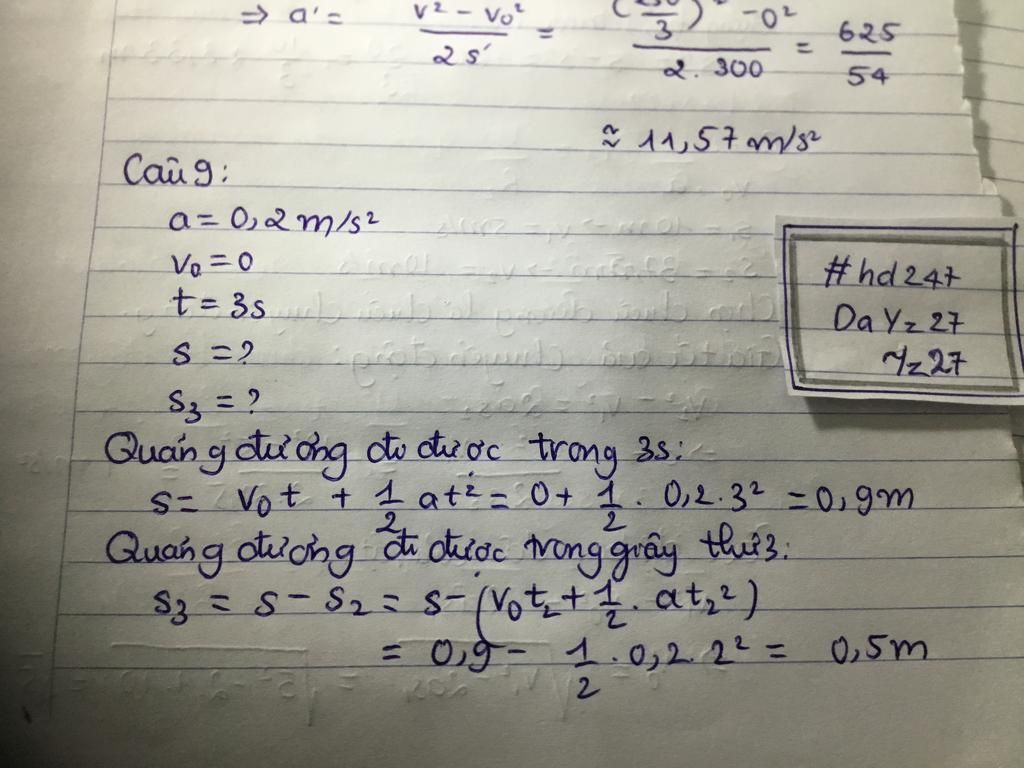 ⇒ a' = v² - v₀² / 2s' = (250/3)² - 0² / 2.300 = 625/54
≈ 11,57 m/s²
Câu 9:
a = 0,2 m/s²
v₀ = 0
t = 3s
s = ?
s₃ = ?
#hd247
DaYz27
Yz27
Quãng đường đi được trong 3s:
s = v₀t + 1/2 at² = 0 + 1/2 . 0,2.3² = 0,9m
Quãng đường đi được trong giây thứ 3:
s₃ = s - s₂ = s - (v₀t₂ + 1/2 . at₂²)
= 0,9 - 1/2 .0,2.2² = 0,5m